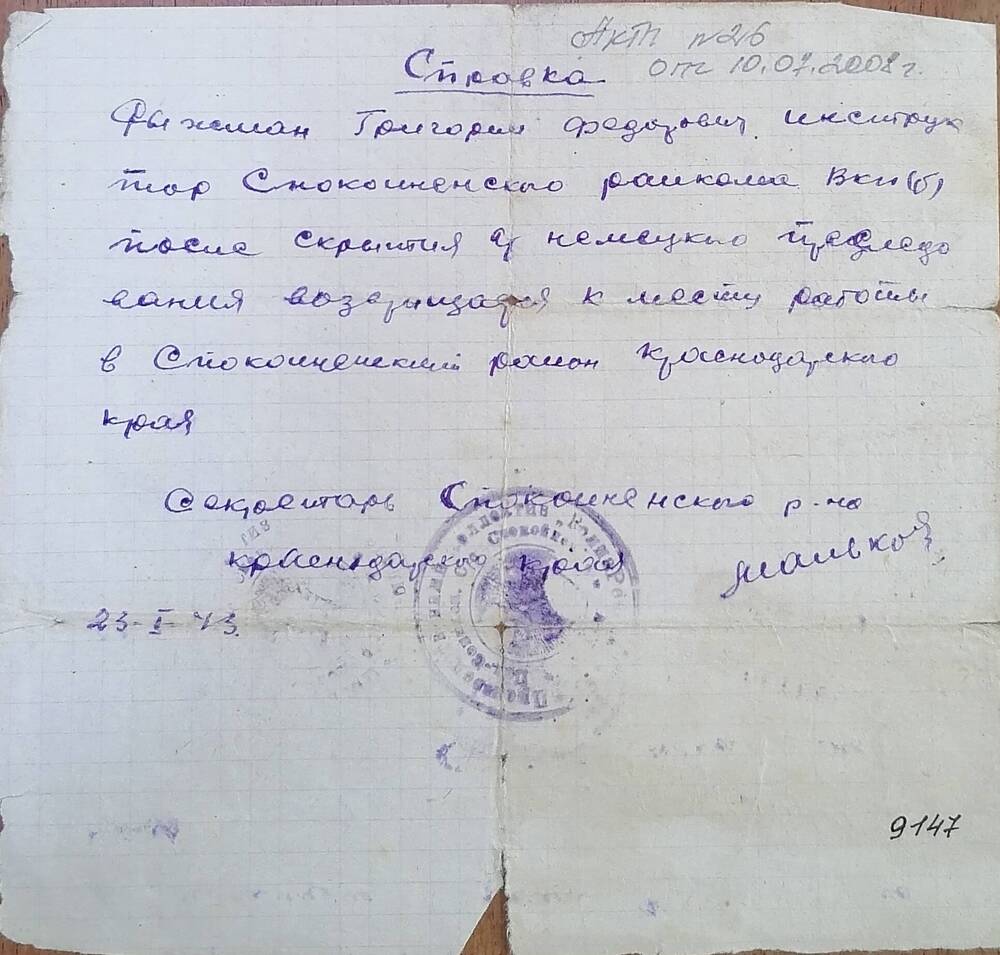 Акт №26
от 10.07.2008 г.
Справка
Григории Федорович инструк
тор Спокоиненского раикома ВКП(б)
после скрытия от немецкого преследо
вания возвращается к месту работы
в Спокоиненскии раион Краснодарского
края
Секретарь Спокоиненского р-на
Краснодарского края
23-I-43.
9147